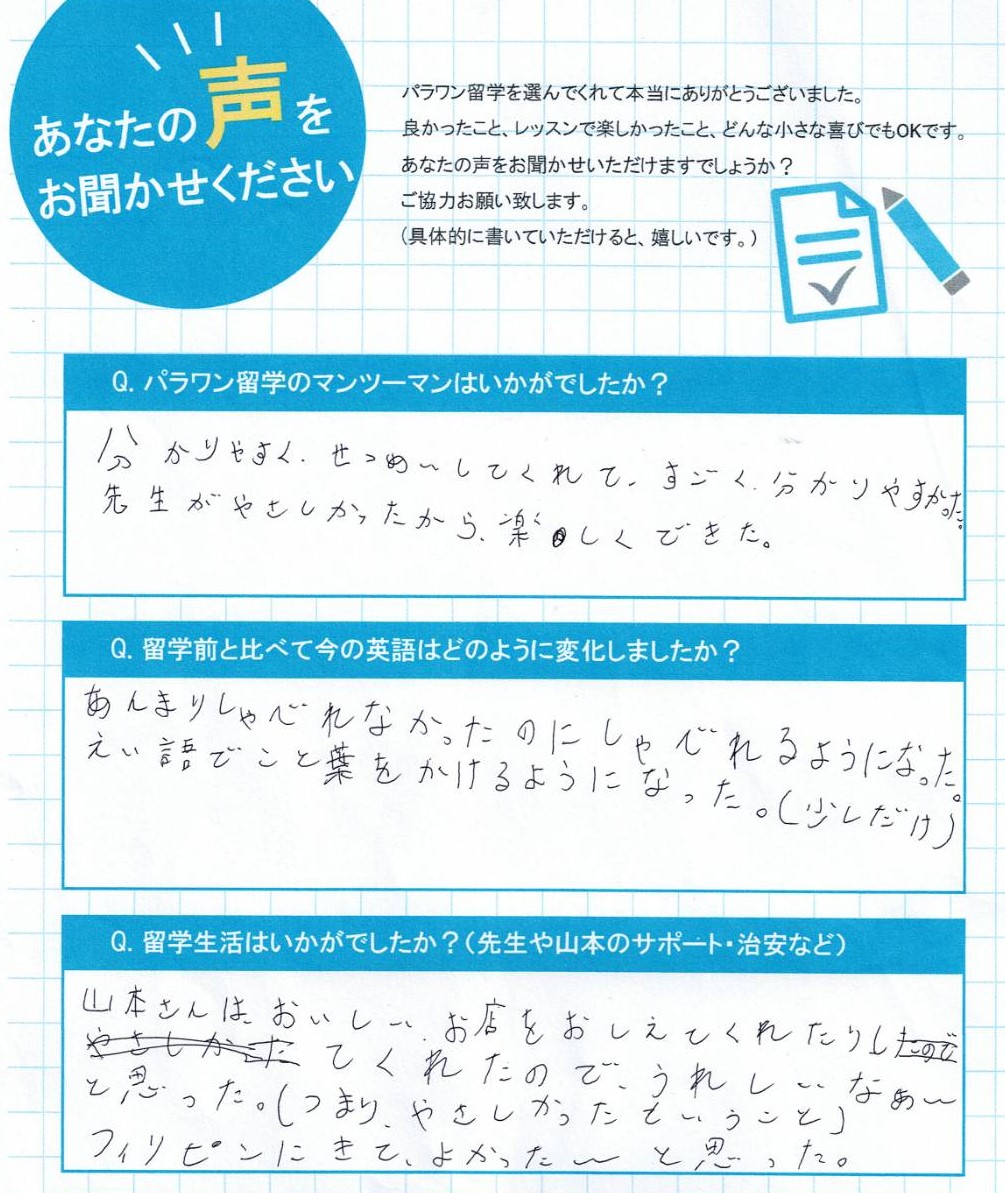 あなたの声を
お聞かせください
パラワン留学を選んでくれて本当にありがとうございました。
良かったこと、レッスンで楽しかったこと、どんな小さな喜びでもOKです。
あなたの声をお聞かせいただけますでしょうか？
ご協力お願い致します。
（具体的に書いていただけると、嬉しいです。）
Q. パラワン留学のマンツーマンはいかがでしたか？
分かりやすく、せつめ〜してくれて、すごく、分かりやすかった。
先生がやさしかったから、楽しくできた。
Q. 留学前と比べて今の英語はどのように変化しましたか？
あんまりしゃべれなかったのにしゃべれるようになった。
えい語でこと葉をかけるようになった。(少しだけ)
Q. 留学生活はいかがでしたか？（先生や山本のサポート・治安など）
山本さんは、おいしい、お店をおしえてくれたりしたので
やさしかった てくれたので、うれしいなぁ〜
と思った。(つまり、やさしかったということ)
フィリピンにきて、よかった〜と思った。